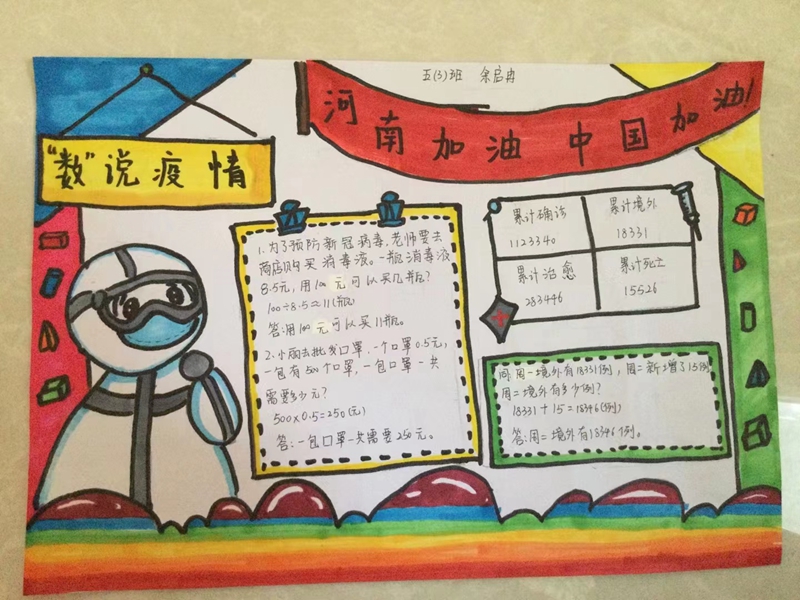 五(3)班 余启冉
河南加油 中国加油!
"数"说疫情
1.为了预防新冠病毒,老师要去
商店购买消毒液。一瓶消毒液
8.5元,用100元可以买几瓶?
100÷8.5≈11(瓶)
答:用100元可以买11瓶。
2.小雨去批发口罩,一个口罩0.5元,
一包有500个口罩,一包口罩一共
需要多少元?
500×0.5=250(元)
答:一包口罩一共需要250元。
累计确诊
1123340
累计境外
18331
累计治愈
283446
累计死亡
15526
问:周一境外有18331例,周二新增了15例
周二境外有多少例?
18331+15=18346(例)
答:周二境外有18346例。